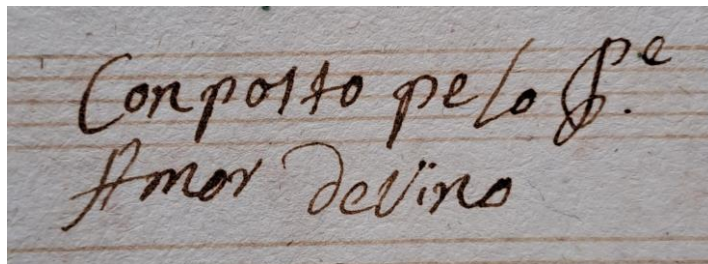 Conposto pelo P.e
Amor deVino